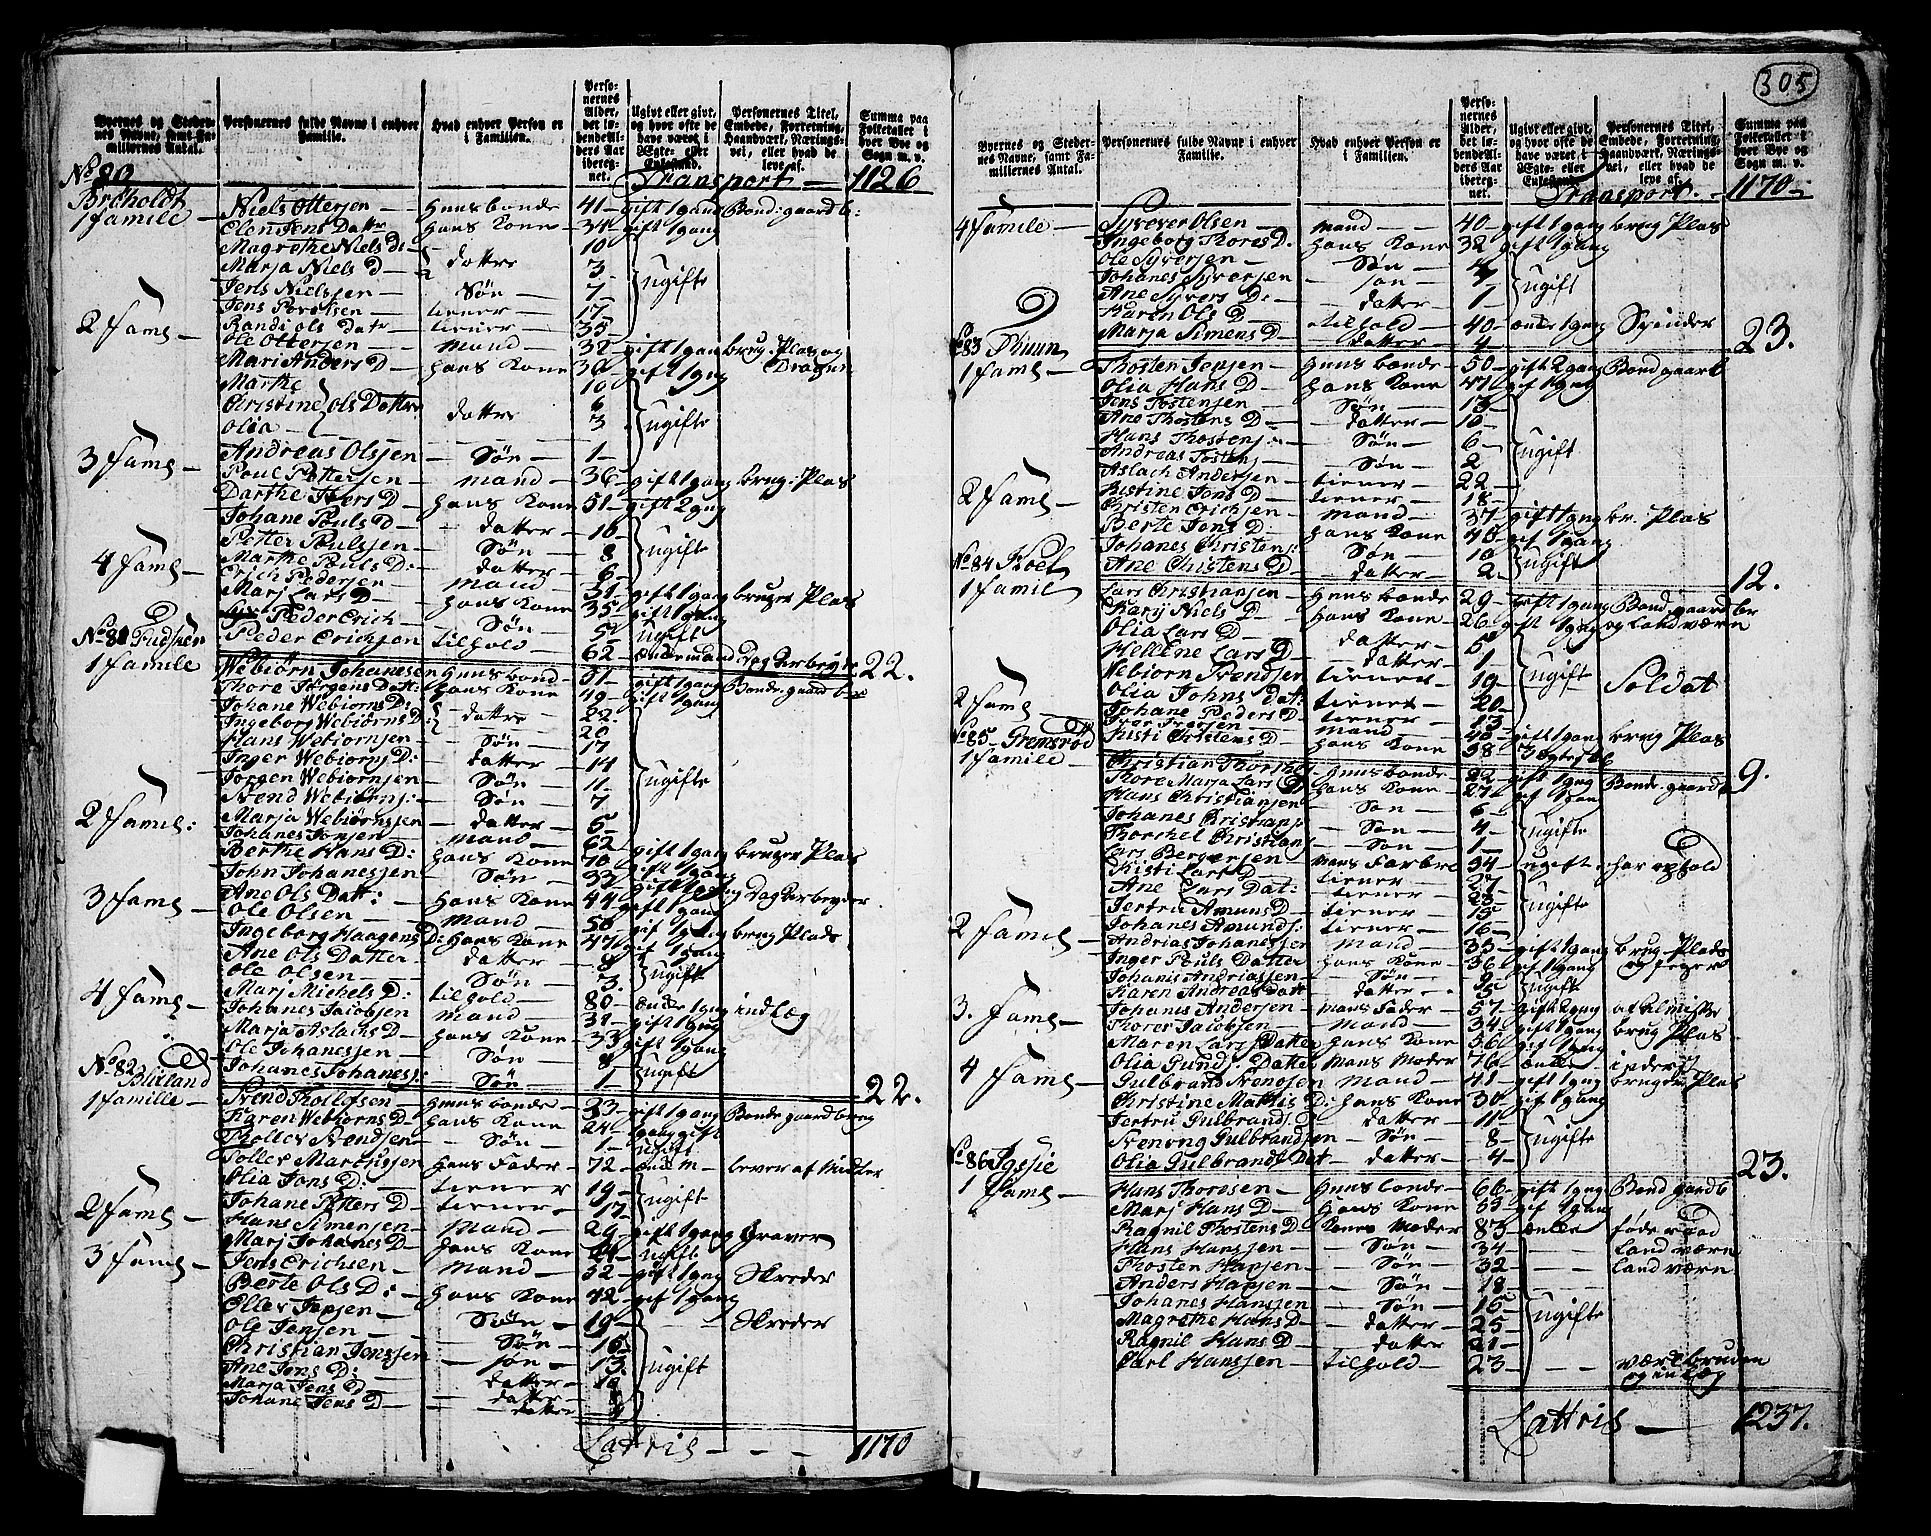 305
Byernes og Stedernes Navne, samt Familiernes Antal.
Personernes fulde Navne i enhver Familie.
Hvad enhver Person er i Familien.
Personernes Alder, det løbende Alders Aar iberegnet.
Ugivt eller givt, og hvor ofte de have været i Ægte- eller Enkestand.
Personernes Titel, Embede, Forretning, Haandværk, Næringsvei, eller hvad de leve af.
Summa paa Folketallet i hver Bye og Sogn m. v.
Transport — 1126
No 80
Niels Ottersen — Huusbonde 41 gift 1 gang Bond: gaard b:
1 famile Elen Jens Datr hans Kone 34 gift 1 gang
Magrethe Niels D: 10
Marja Niels D — datter 3 ugifte
Jens Nielssen — Søn — 7
tiener — 17
Randi Ols Datr tiener — 35
2 fame — Ole Ottersen — mand — 32 gift 1 gang brug: Plas og
Mari Anders D — hans Kone 30 gift 1 gang Dragun
Marthe 10
Christine Ols Datter datter 6 ugifte
Olia — 3
Andreas Olsen — Søn — 1
3 fame — Poul Pettersen — mand — 36 gift 1 gang brug: Plas
Darthe D — hans Kone 51 gift 2 gng
Johane Pouls D — datter — 16
Petter Poulssen — Søn — 8 ugifte
Marthe Pouls D: datter — 6
4 fame — Erich Pedersen — mand — 31 gift 1 gang bruger Plas
Marj Lars D — hans Kone 35 gift 1 gang
Peder Erich — Søn — 5 ugift
Peder Erichsen tilhold — 62 22.
No 81
1 famile Webiørn Johanesen Huusbond — 51 gift 1 gang Bonde gaard br
Thore Jørgens Datt: hans Kone 49 gift 1 gang
Johane Webiørns D: 22
Ingeborg Webiørns D: datter 20
Hans Webiornsen — Søn — 17
Inger Webiorns D: datter — 14
Jørgen Webiornsen — Søn — 11 ugifte
Svend Webiørns: — Søn — 7
Marja Webiørnssen — datter — 5
2 famil: Johanes Jonsen — mand — 62 gift 1 gang bruger Plas
Berthe Hans D: hans Kone 70 gift 1 gang
John Johanessen — Søn — 33 gift 1 gng Dagarbeyder
Ane Ols Datt: hans Kone 44 gift 1 gang
3 fame — Ole Olsen — mand — 50 gif 1 gang brug Plads
Ingeborg Haagens D: hans Kone 47 gif 1 gang
Ane Ols Datter datter — 8
Ole Olsen — Søn — 3 ugifte
Marj Michels D: tilhold — 80 enke 1 gng indlæg
4 fame — Johanes Jacobsen mand — 31 gift 1 gng
Marja Aslachs D — hans Kone 33 gift 1 gang
Ole Johanessen — Søn — 8
Johanes Johanes: Søn — 1 ugifte 22.
No 82 Blixland
1 famille — Svend Tollefsen — Huusbonde — 33 gift 1 gang Bonde gaard brug
Karen Webiørns D — hans Kone 24
Tholler Svendsen — Søn — 1 ugift
hans Fader — 72 lever af Midler
Olia Jons D: — tiener 19
Johane Petters D — tiener 17 ugifte
2 fame — Hans Simensen — mand — 29 gift 1 gang Graver
Marj Johanes D — hans Kone 24
3 fame — Jens Erichsen — mand — 52 gift 1 gng Skreder
Berte Ols D: hans Kone 42 gif 1 gang
Søn — 19 Skreder
Ole Jensen — Søn — 16
Christian Jenssen — søn — 13 ugift
Ane Jens D: datter — 10
Marja Jens D — datter —
Johane Jens D — datter —
Lattris — 1170
Byernes og Stedernes Navne, samt Familiernes Antal.
Personernes fulde Navne i enhver Familie.
Hvad enhver Person er i Familien.
Personernes Alder, det løbende Alders Aar iberegnet.
Ugivt eller givt, og hvor ofte de have været i Ægte- eller Enkestand.
Personernes Titel, Embede, Forretning, Haandværk, Næringsvei, eller hvad de leve af.
Summa paa Folketallet i hver Bye og Sogn m. v.
Transport. — 1170
4 famile — Syver Olsen — mand — 40 gift 1 gang brug Plas
Ingeborg Thores D. hans Kone 32 gift 1 gang
Ole Syversen — Søn —
Johanes Syversen — søn — ugift
Ane Syvers D: — datter — 1
Karen Ols D — tilhold — 40 enke 1 gang Spinder
Marja Simens D — datter — 4 23.
No 83
1 fame — Thosten Jensen — Huusbonde — 50 gift 2 gang Bond gaard b
Olia Hans D — hans Kone 47 gif 1 gang
Jens Tostensen — Søn — 13
Ane Thostens D — datter — 10
Hans Thostens: — Søn — 6 ugift
Andreas Tostens — Søn — 2
Aslach Andersen — tiener — 22
Kistine Jens D — tiener — 18
2 fame — Christen Erichsen — mand — 37 gift 1 gang br. Plas
Berte Jens D — hans Kone 40 gif 1 gang
Johanes Christens: Søn — 10 ugift
Ane Chistens D — datter — 2 12.
No 84
1 famil Lars Christiansen — Huusbonde 29 gift 1 gng Bond gaard br
Karj Niels D — hans Kone 26 gift 1 gng og Landværn
Olia Lars D — datter — 5
Hellene Lars D — datter — 1
Webiorn Svendsen tiener — 19 ugift Soldat
Olia Johns dat: tiener — 20
Johane Peders D — tiener — 13
2 fame — Iver Iversen — mand — 40 gift 1 gang brug Plas
Kisti Christens D — hans Kone 38 9.
No 85 Gremsrød
1 famile — Christian Thorsen Huusbonde — 22 gift 1 gng Bonde gaard b
Thore Marja Lars D hans Kone — 27 gif 1 gang
Hans Christiansen — Søn — 6
Johanes Christians — Søn — 4 ugifte
Thorchel Christians — Søn — 1
Lars Bergersen — mans Farbrl 34 ugift har ophold
Kisti Lars D — tiener — 27
Ane Lars Dat: tiener 23
Jertru Amuns D — tiener — 15 ugifte
Johanes Amunds: tiener — 16
2 fame — Andrias Johanessen mand — 35 gift 1 gang brug Plads
Inger Pouls Datter hans Kone — 36 gif 1 gang og Jeger
Johanis Andriassen — Søn — 9
Karen Andreas Datt — datter — 5 ugift
Johanes Andersen — mans Fader — 57 gift 2 gng
3. fame — Thorer Jacobsen — mand — 34 gift 1 gang brug Plas
Maren Lars Datter hans Kone — 36 gif 1 gang
Olia Gunds: Datter mans Moder — 76 enke
4 fame — Gulbrand Svendsen mand — 41 gift 1 gang bruger Plas
Christine Mathis D: hans Kone — 30 gif 1 gang
Jertru Gulbrands D — datter — 11
Gulbrandsen — Søn — 8 ugifte
Olia Gulbrands Dat — datter — 4 23.
No 86
1 fame — Hans Thoresen — Huusbonde — 66 gift 1 gng Bond gaard b
Marj Hans D — hans Kone — 53 gif 1 gang
Ragnil Thostens D — Kones Moder — 83 enke føde raad
Hans Hanssen — Søn — 34 — — Land værn
Thosten Hansen — Søn — 32 — — Land værn
Anders Hansen — Søn — 18
Johanes Hanssen — Søn — 15 ugifte
Magrethe Hans D — datter — 25
Ragnil Hans D — datter — 21
Carl Hanssen — tilhold — 23 — —
Lattris — 1237.